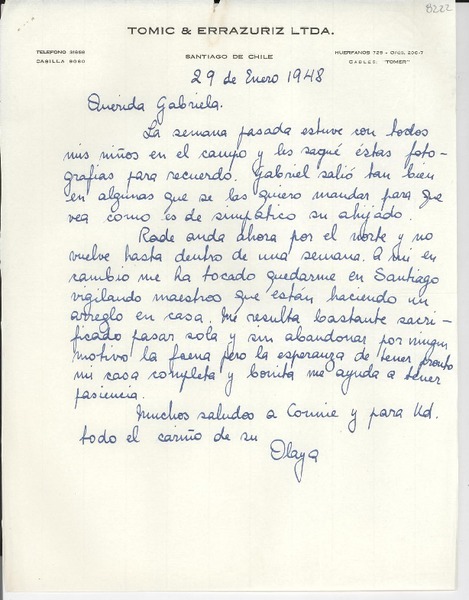 8222
TOMIC & ERRAZURIZ LTDA.
TELEFONO 31958
CASILLA 9060
SANTIAGO DE CHILE
HUERFANOS 725 - OFIC. 206-7
CABLES: "TOMER"
29 de Enero 1948
Querida Gabriela.
La semana pasada estuve con todos
mis niños en el campo y les saqué éstas foto-
grafias para recuerdo. Gabriel salió tan bien
en algunas que se las quiero mandar para que
vea como es de simpático su ahijado.
Rade anda ahora por el norte y no
vuelve hasta dentro de una semana. A mi en
cambio me ha tocado quedarme en Santiago
vigilando maestros que están haciendo un
arreglo en casa. Me resulta bastante sacri-
ficado pasar sola y sin abandonar por ningun
motivo la faena pero la esperanza de tener pronto
mi casa completa y bonita me ayuda a tener
pasiencia.
Muchos saludos a Connie y para Ud.
todo el cariño de su
Olaya